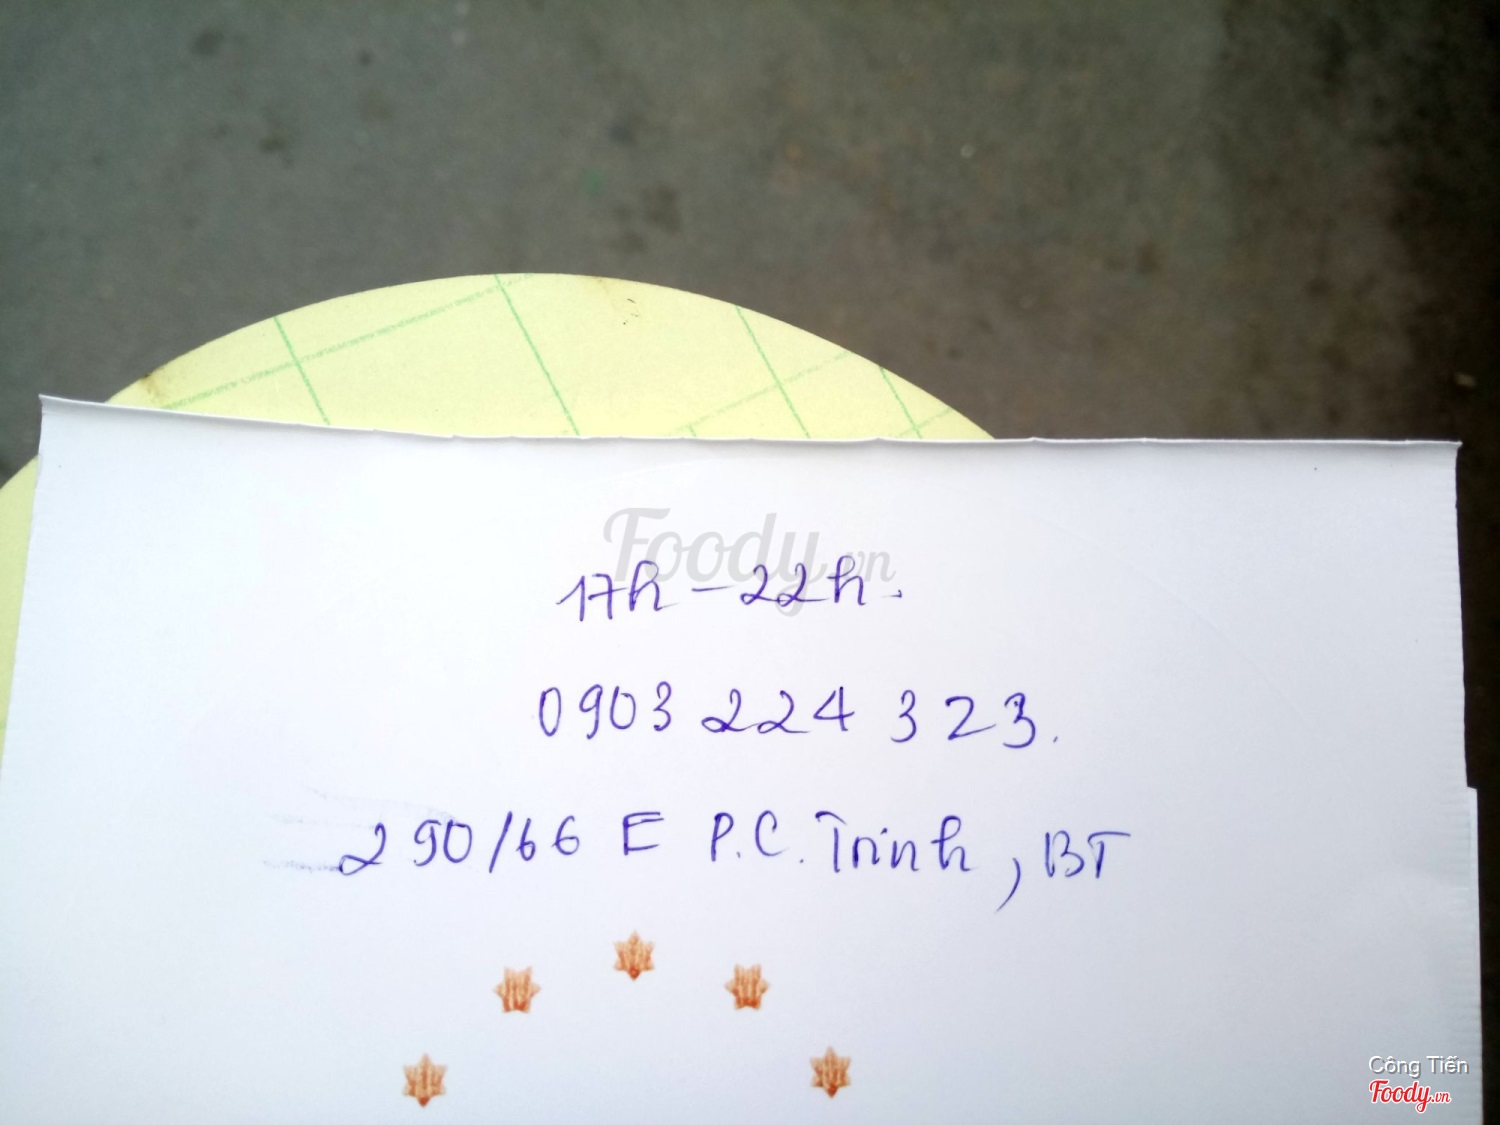 Foody.vn
17h - 22h.
0903 224 323.
290/66 E P.C. Trinh, BT
Công Tiến
Foody.vn